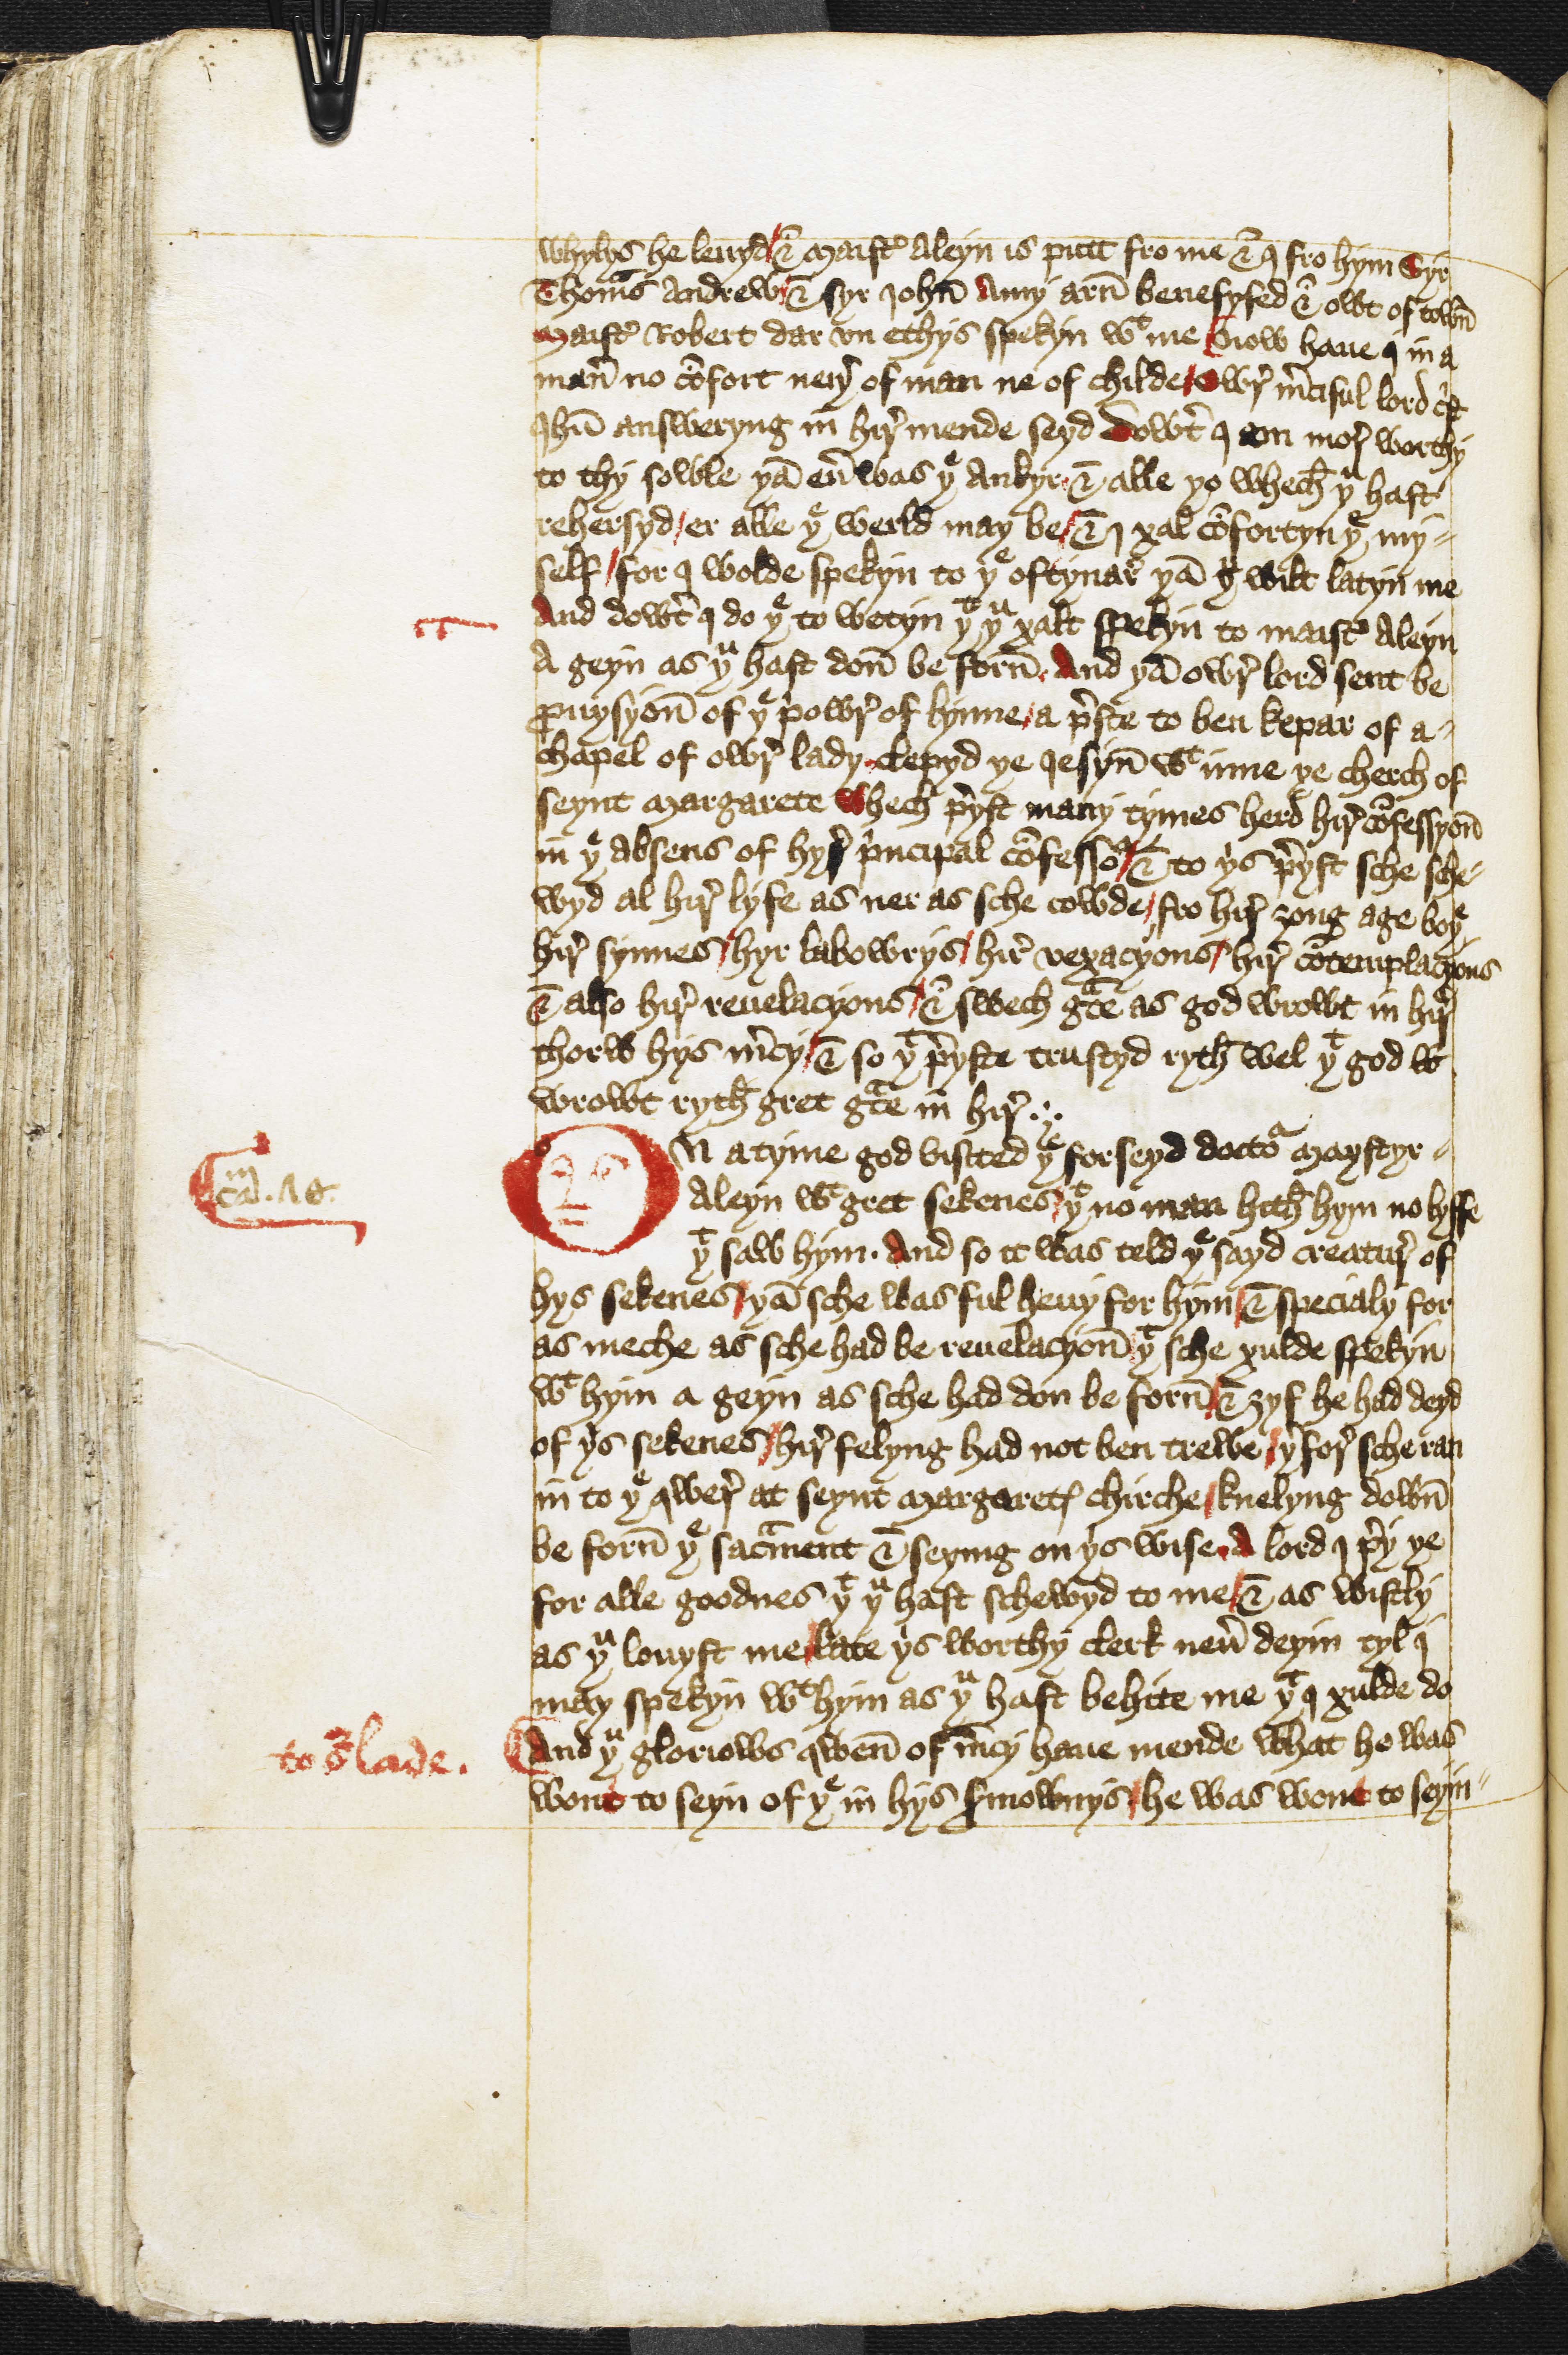 whylys he leuyd / & Maistꝰ Aleyn is putt fro me & I fro hym Syr
Thomˢ Andrew / & syr John̄ Amy arn̄ benefysed & owt of town̄
Maistꝰ Robert dar vn ethys spekyn wᵗ me Now haue I in a
man̄ no cōfort neyꝰ of man ne of childe / Owꝰ m̄ciful lord cᵉst
Ihū answeryng in hirꝰ mende seyd Dowt̄ I am morꝰ worthy
to thy sowle yā eū was yᵉ Ankyr & alle yo whech yᵘ hast
rehersyd / er alle yᵉ werld may be / & I xal cōfortyn yᵉ my=
self / for I wolde spekyn to yᵉ oftynar yā yᵘ wilt latyn me
And dowt̄ I do yᵉ to wetyn yᵗ yᵘ xalt spekyn to maistꝰ Aleyn
A geyn as yᵘ hast don̄ be forn̄. And yā owꝰ lord sent be
ꝓuysyon̄ of yᵉ pᵉowꝰ of lynne / a pᵉste to ben kepar of a=
chapel of owꝰ lady clepyd ye Iesyn̄ wᵗ inne ye cherch of
seynt Margarete Whech pᵉyst many tymes herd hirꝰ cōfessyon̄
in yᵉ absens of hyꝰ pⁱncipal cōfessoʳ / & to yⁱs pᵉyst sche sche=
wyd al hirꝰ lyfe as ner as sche cowde / fro hirꝰ ȝong age boyᵉ
hirꝰ synnes / hyr labowrys / hirꝰ vexacyons / hirꝰ cōtemplacyons
& also hirꝰ reuelacyons / & swech gᵃce as god wrowt in hirꝰ
thorw hys m̄cy / & so yᵗ pᵉyste trustyd ryth wel yᵗ god w
wrowt ryth gret gᵃce in hirꝰ
cam̄. 70.
On a tyme god visited yᵉ forseyd doctoʳ Maystyr=
Aleyn wᵗ gret sekenes / yᵗ no man hith hym no lyffe
yᵗ saw hym. And so it was teld yᵉ sayd creaturꝰ of
hys sekenes / yā sche was ful heuy for hym / & specialy for
as meche as sche had be reuelacyon̄ yᵗ sche xulde spekyn
wᵗ hym a geyn as sche had don be forn̄ / & ȝyf he had deyd
of yⁱs sekenes / hirꝰ felyng had not ben trewe / yᵉforꝰ sche ran
in to yᵉ qwerꝰ at seynt Margaretꝭ chirche / knelyng down̄
be forn̄ yᵉ sacᵃment & seying on yⁱs wise. A lord I pᵉy ye
for alle goodnes yᵗ yᵘ hast schewyd to me / & as wistly
as yᵘ louyst me / late yⁱs worthy clerk neū deyin tyl I
may spekyn wᵗ hym as yᵘ hast behite me yᵗ I xulde do
to our̄ lade.
And yᵘ gloriows qwen̄ of m̄cy haue mende what he was
wont to seyn of yᵉ in hys sermownys / he was wont to seyin=